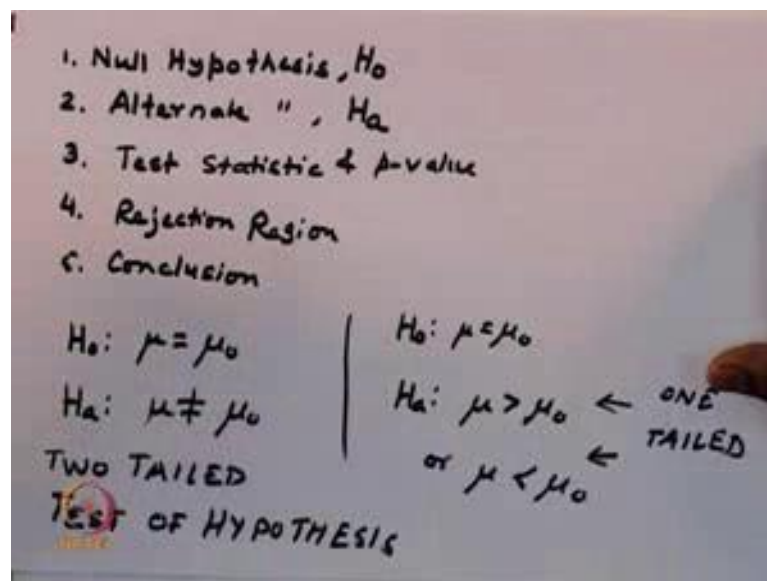 1. Null Hypothesis, H₀
2. Alternate ", Ha
3. Test Statistic & p-value
4. Rejection Region
5. Conclusion
H₀: μ = μ₀
Ha: μ ≠ μ₀
TWO TAILED
TEST OF HYPOTHESIS
H₀: μ = μ₀
Ha: μ > μ₀ ← ONE
or μ < μ₀ ← TAILED